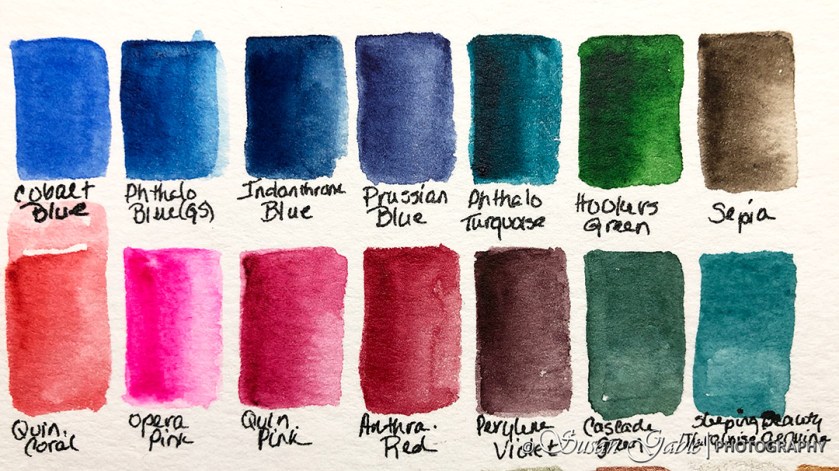 Cobalt
Blue
Phthalo
Blue(GS)
Indanthrone
Blue
Prussian
Blue
Phthalo
Turquoise
Hookers
Green
Sepia
Quin.
Coral
Opera
Pink
Quin.
Pink
Anthra.
Red
Perylene
Violet
Cascade
Green
Sleeping Beauty
Turquoise Genuine
@Susan Gable | PHOTOGRAPHY